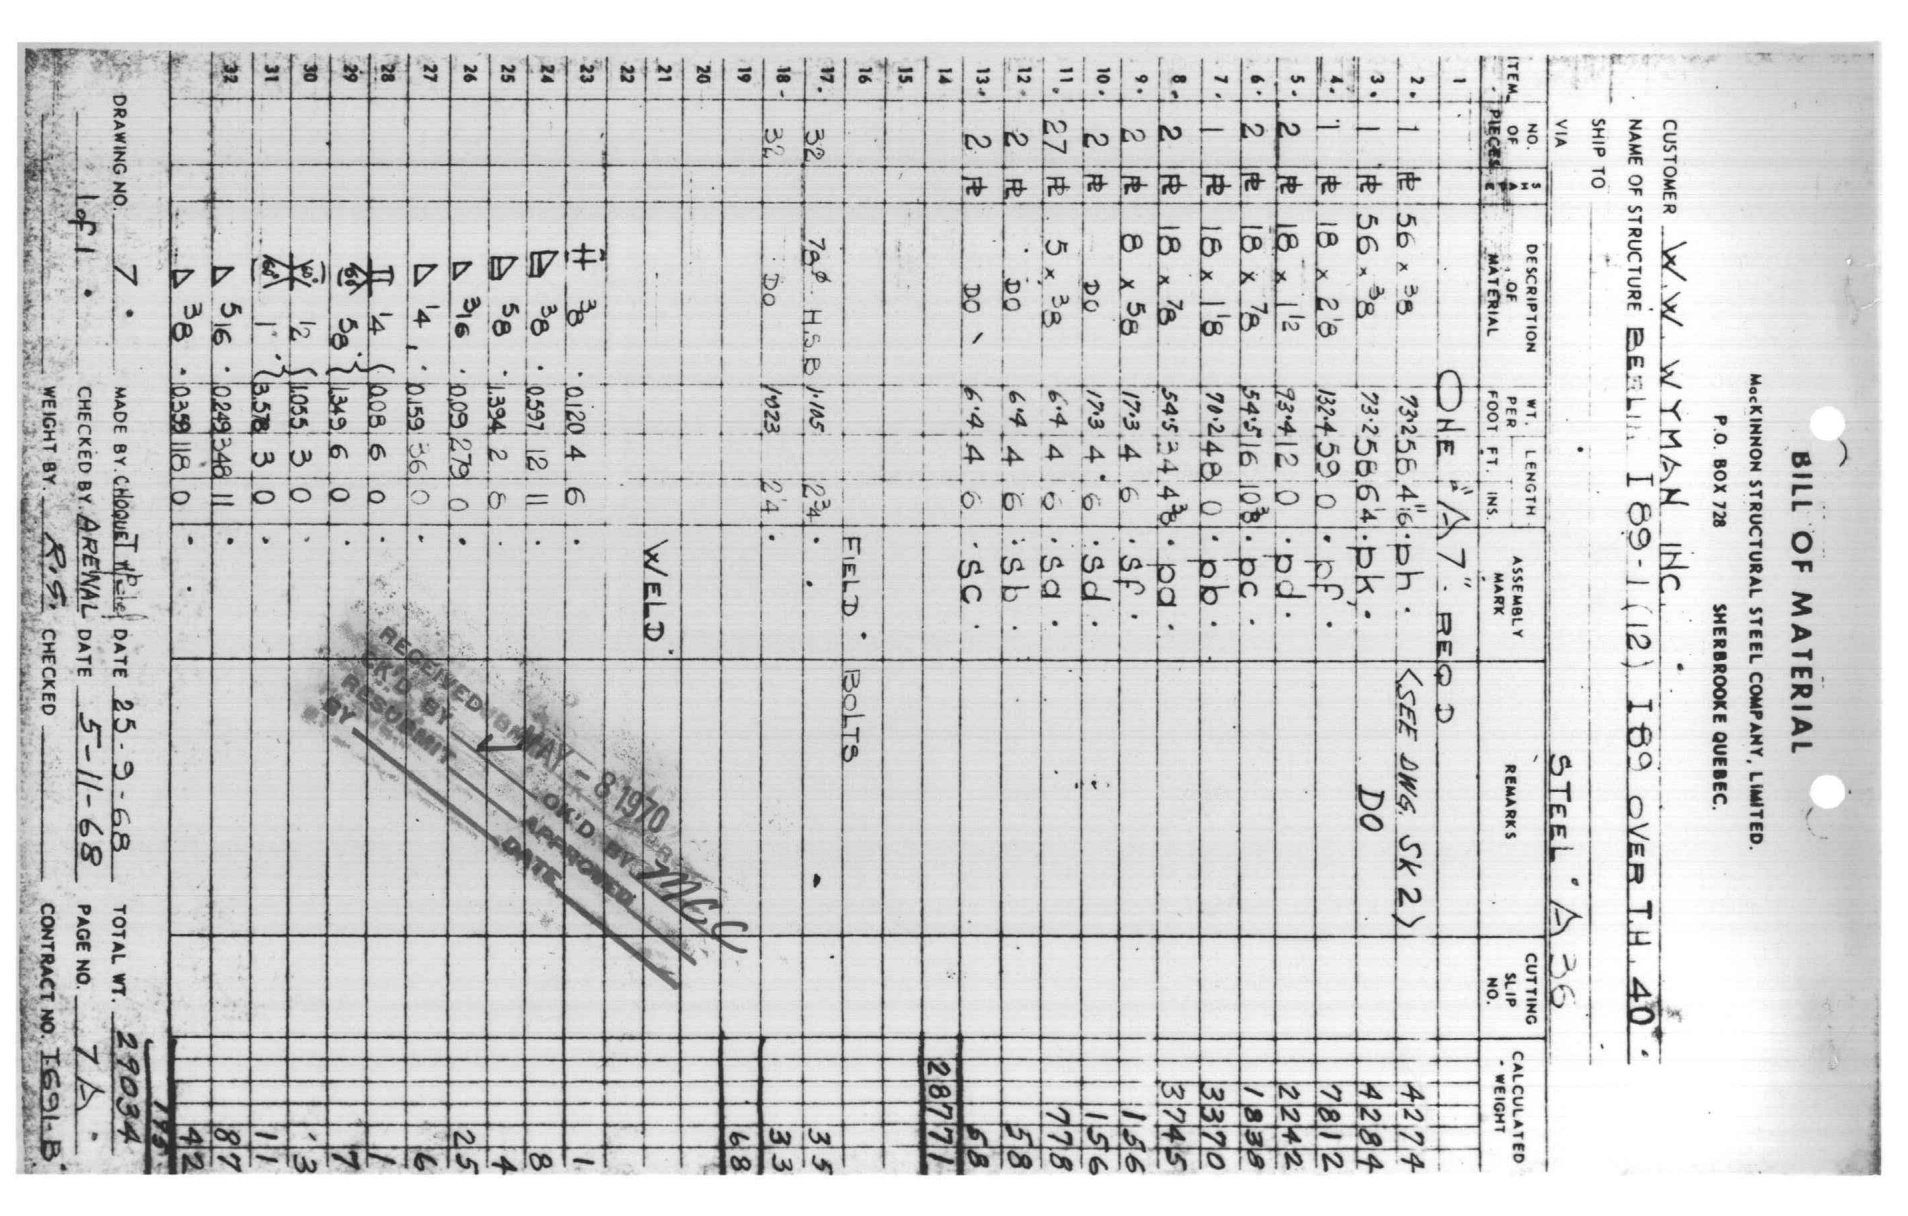 BILL OF MATERIAL
McKINNON STRUCTURAL STEEL COMPANY, LIMITED.
P.O. BOX 728 SHERBROOKE QUEBEC.
CUSTOMER W.W. WYMAN INC.
NAME OF STRUCTURE I 89-1 (12) I 89 OVER T.H. 40
SHIP TO
VIA STEEL A 36
ITEM NO. OF PIECES SHAPE DESCRIPTION OF MATERIAL WT. PER FOOT LENGTH FT. INS. ASSEMBLY MARK REMARKS CUTTING SLIP NO. CALCULATED WEIGHT
1 ONE "A7" REQD
2. 1 PL 56 x 3/8 73.2 58 4 1/16 ph. (SEE DWG. SK2) 4274
3. 1 PL 56 x 3/8 73.2 58 6 1/4 pk. DO 4284
4. 1 PL 18 x 2 1/8 132.4 59 0 pf. 7812
5. 2 PL 18 x 1 1/2 93.4 12 0 pd. 2242
6. 2 PL 18 x 7/8 54.5 16 10 3/8 pc 1838
7. 1 PL 18 x 1 1/8 70.2 48 0 pb. 3370
8. 2 PL 18 x 7/8 54.5 34 4 3/8 pa. 3745
9. 2 PL 8 x 5/8 17.3 4 6 sf. 156
10. 2 PL DO 17.3 4 6 sd. 156
11. 27 PL 5 x 3/8 6.4 4 6 sa. 778
12. 2 PL DO 6.4 4 6 sb. 58
13. 2 PL DO 6.4 4 6 sc. 68
14 28771
15
16 FIELD BOLTS
17. 32 7/8 ø H.S.B 1.105 2 3/4 35
18. 32 DO 1.023 2 1/4 33
19 68
20
21 WELD
22
23 3/8 0.120 4 6 1
24 3/8 0.597 12 11 8
25 5/8 1.394 2 8 4
26 3/16 0.09 279 0 25
27 1/4 0.159 36 0 6
28 1/4 0.08 6 0 1
29 60° 5/8 1.349 6 0 7
30 60° 1/2 1.055 3 0 3
31 60° 1" 3.578 3 0 11
32 5/16 0.249 348 11 87
3/8 0.359 118 0 42
DRAWING NO. 7 MADE BY CHOQUET DATE 25-9-68 TOTAL WT. 29034
1 of 1 CHECKED BY ARENAL DATE 5-11-68 PAGE NO. 7A
WEIGHT BY R.S. CHECKED CONTRACT NO. I691-B
RECEIVED MAY - 8 1970
CK'D BY OK'D BY MCC
RESUBMIT APPROVED
BY DATE